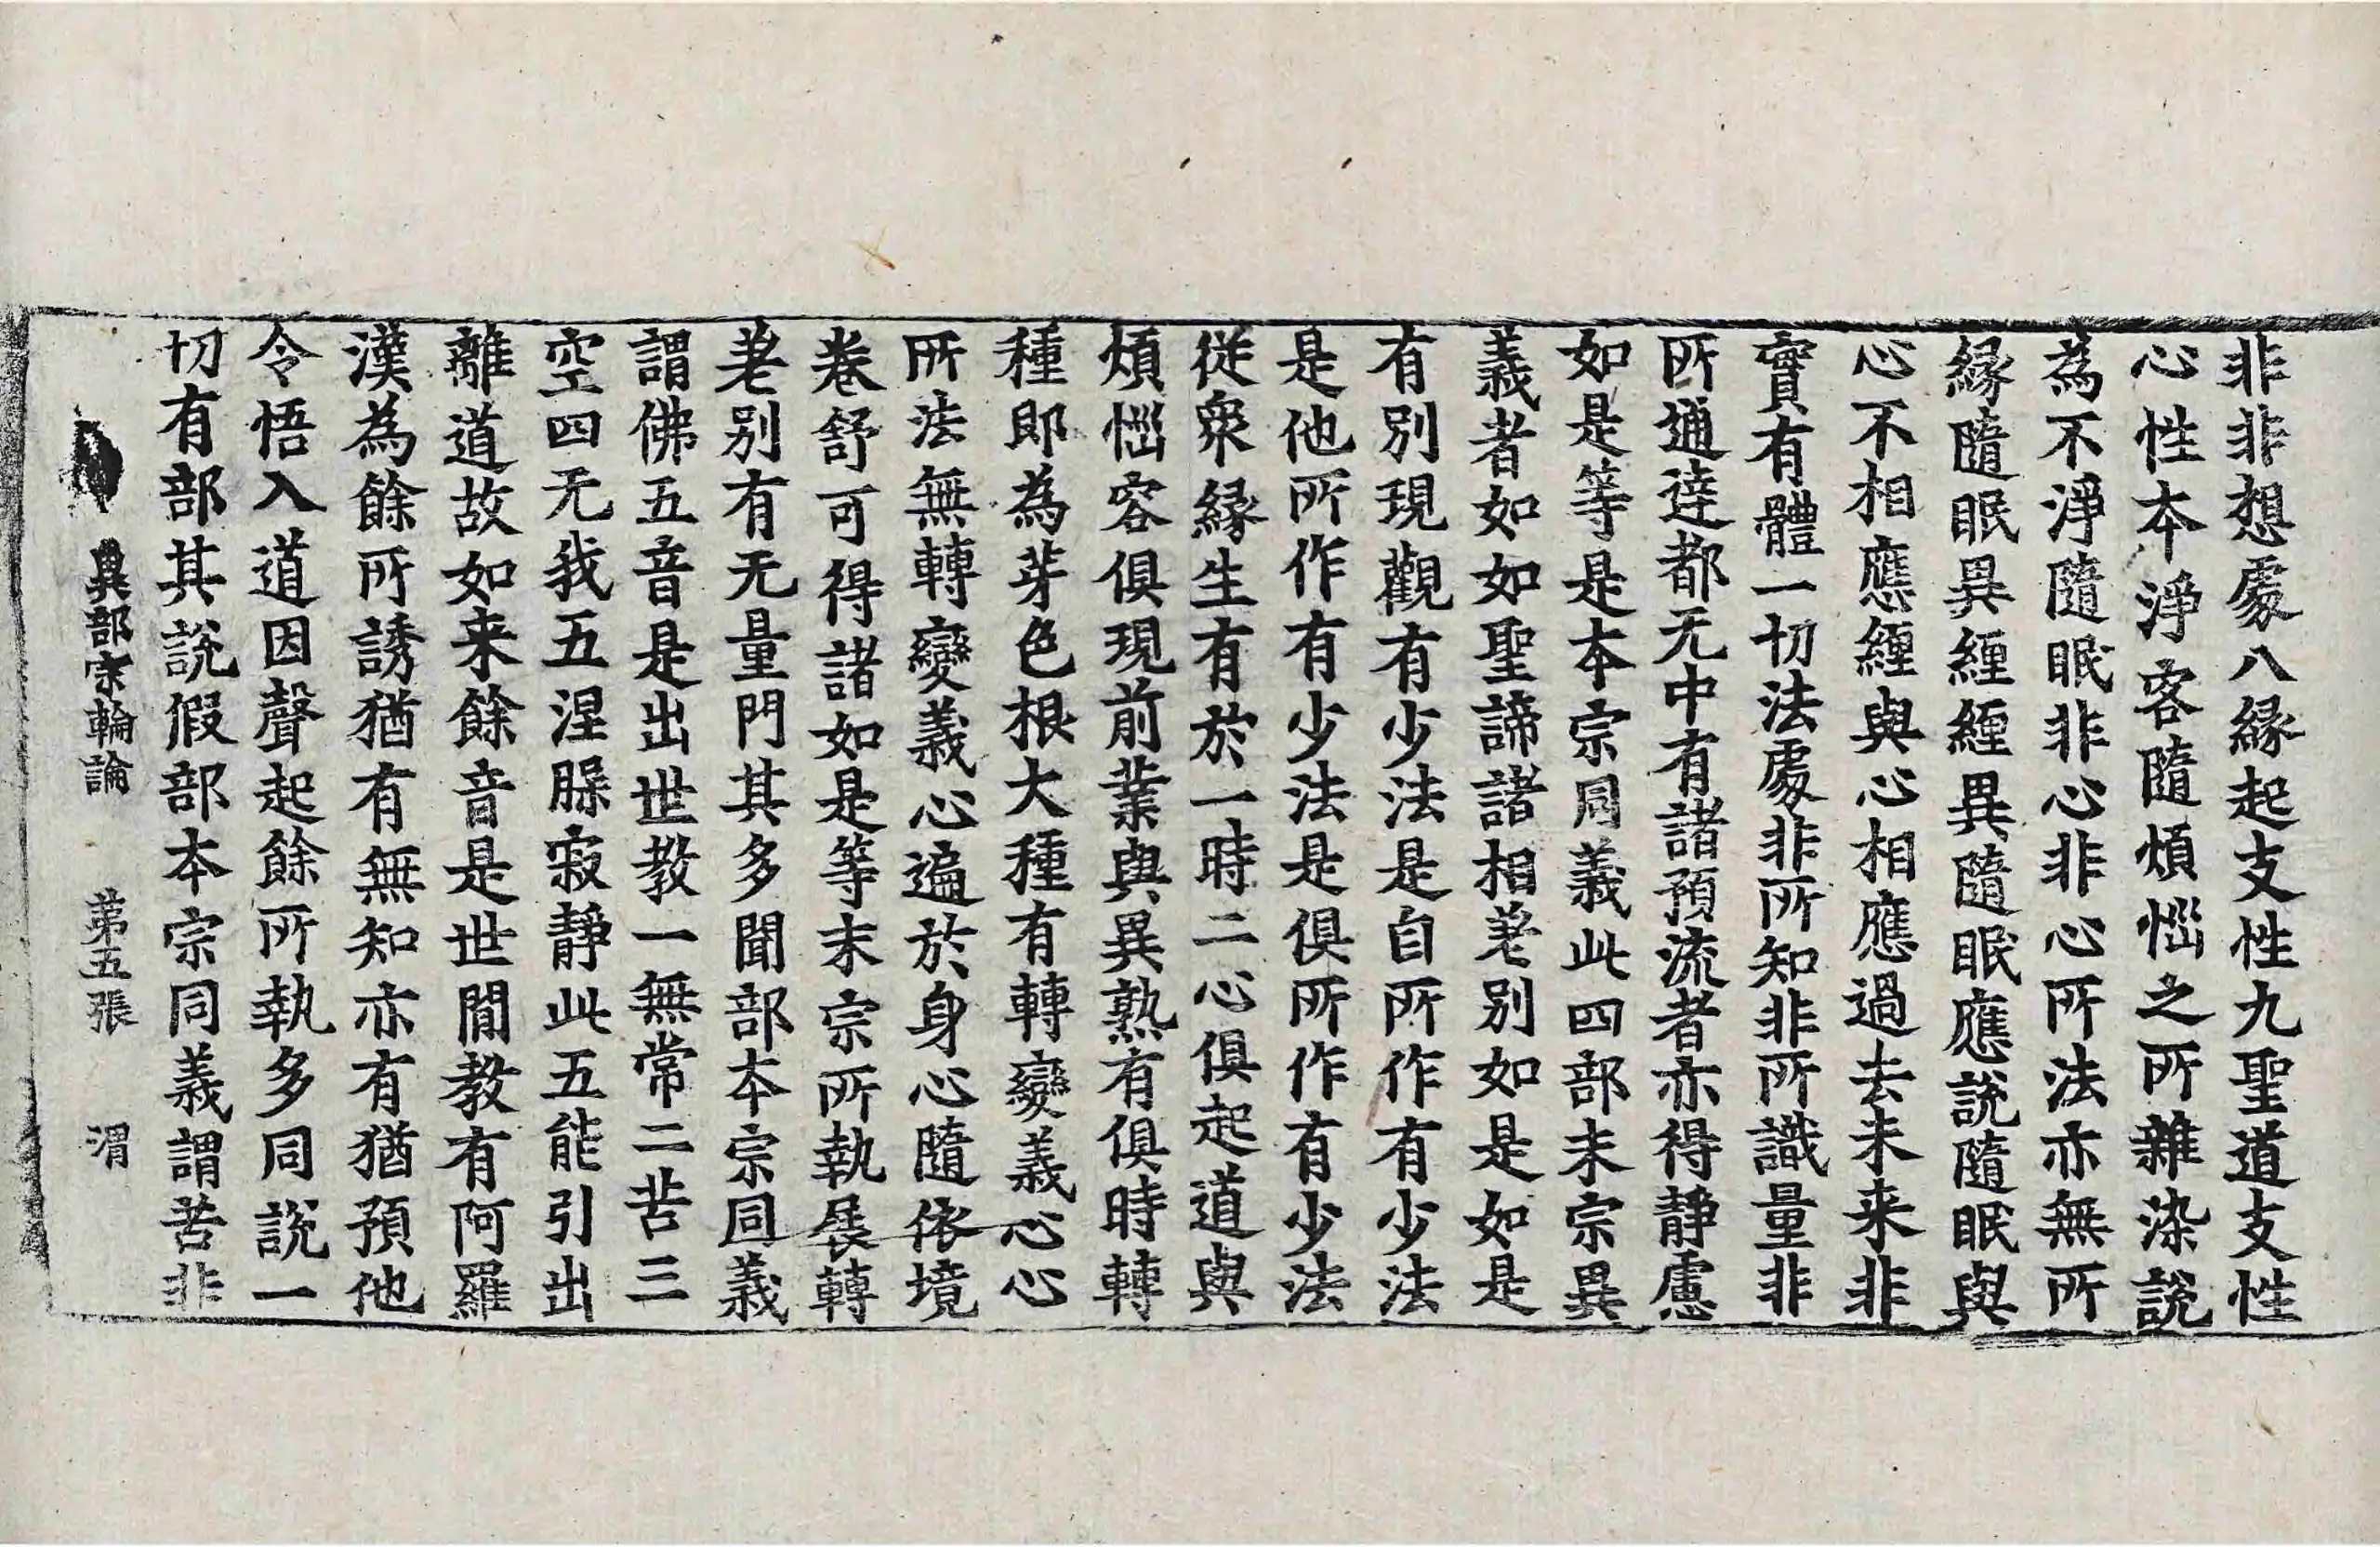 非非想處八緣起支性九聖道支性
心性本淨客隨煩惱之所雜染說
為不淨隨眠非心非心所法亦無所
緣隨眠異纏纏異隨眠應說隨眠與
心不相應纏與心相應過去未来非
實有體一切法處非所知非所識量非
所通達都无中有諸預流者亦得靜慮
如是等是本宗同義此四部末宗異
義者如如聖諦諸相差別如是如是
有別現觀有少法是自所作有少法
是他所作有少法是俱所作有少法
從衆緣生有於一時二心俱起道與
煩惱容俱現前業與異熟有俱時轉
種即為芽色根大種有轉變義心心
所法無轉變義心遍於身心隨依境
卷舒可得諸如是等末宗所執展轉
差別有无量門其多聞部本宗同義
謂佛五音是出世教一無常二苦三
空四无我五涅槃寂靜此五能引出
離道故如来餘音是世間教有阿羅
漢為餘所誘猶有無知亦有猶預他
令悟入道因聲起餘所執多同說一
切有部其說假部本宗同義謂苦非
異部宗輪論 第五張 渭